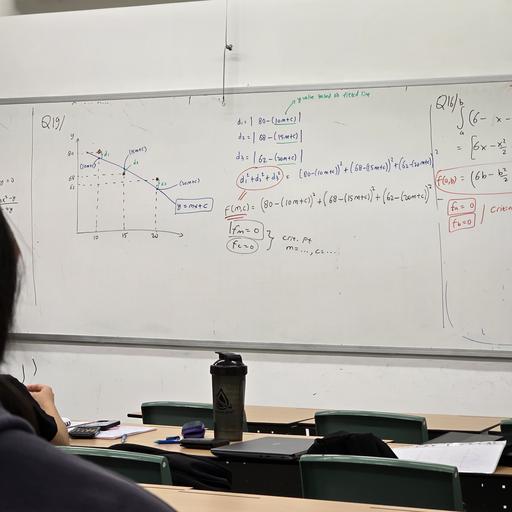 Q19/
y
80
68
62
10
15
20
(10m+c)
(15m+c)
(20m+c)
d1
d2
d3
y = mx+c
y value based on fitted line
d1 = | 80 - (10m+c) |
d2 = | 68 - (15m+c) |
d3 = | 62 - (20m+c) |
d1² + d2² + d3² = (80-(10m+c))² + (68-(15m+c))² + (62-(20m+c))²
F(m,c) = (80-(10m+c))² + (68-(15m+c))² + (62-(20m+c))²
fm = 0
fc = 0
} crit. pt
m = ..., c = ...
Q16/
∫ₐᵇ (6 - x -
= [6x - x²/2
f(a,b) = (6b - b²/2
fa = 0
fb = 0